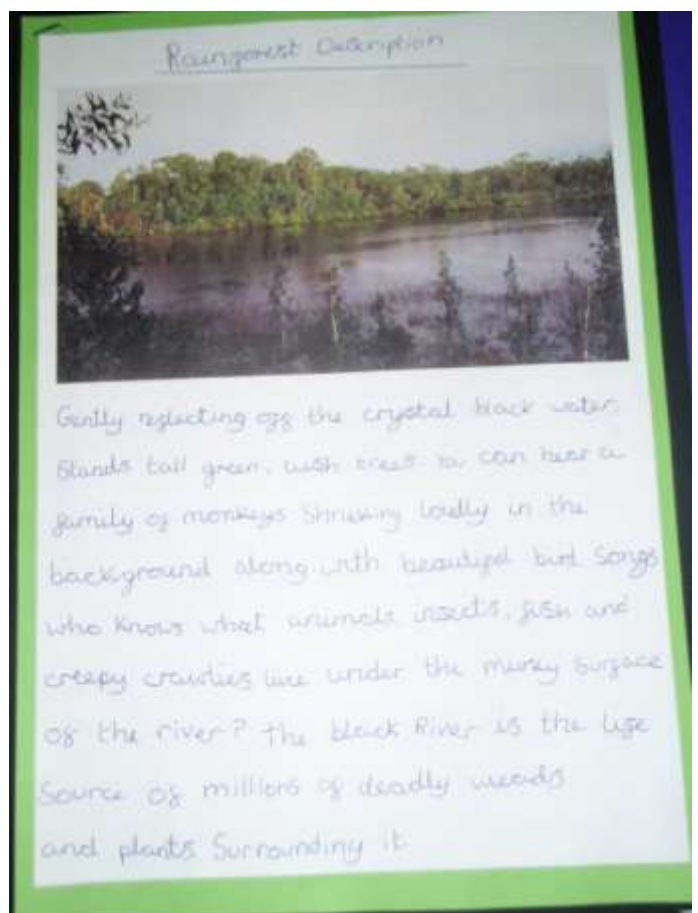 Rainforest Description
Gently reflecting off the crystal black water.
Stands tall green, lush trees can hear a
family of monkeys Shrieking loudly in the
background along with beautiful bird Songs
who knows what animals insects, fish and
creepy crawlies live under the murky surface
of the river? The black River is the life
Source of millions of deadly weads
and plants Surrounding it